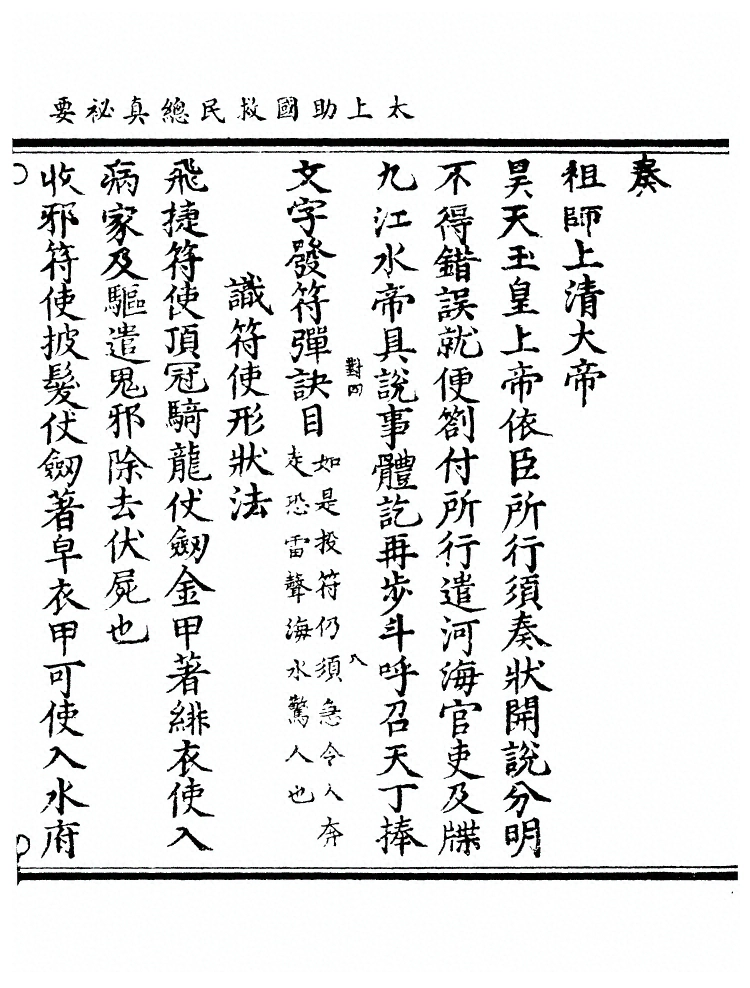 太上助國救民總真祕要
奏
祖師上清大帝
昊天玉皇上帝依臣所行須奏狀開說分明
不得錯誤就便劄付所行遣河海官吏及牒
九江水帝具說事體訖再步斗呼召天丁捧
對四
八
文字發符彈訣目
如是投符仍須急令人奔
走恐雷聲海水驚人也
識符使形狀法
飛捷符使頂冠騎龍伏劒金甲著緋衣使入
病家及驅遣鬼邪除去伏屍也
收邪符使披髮伏劒著皁衣甲可使入水府